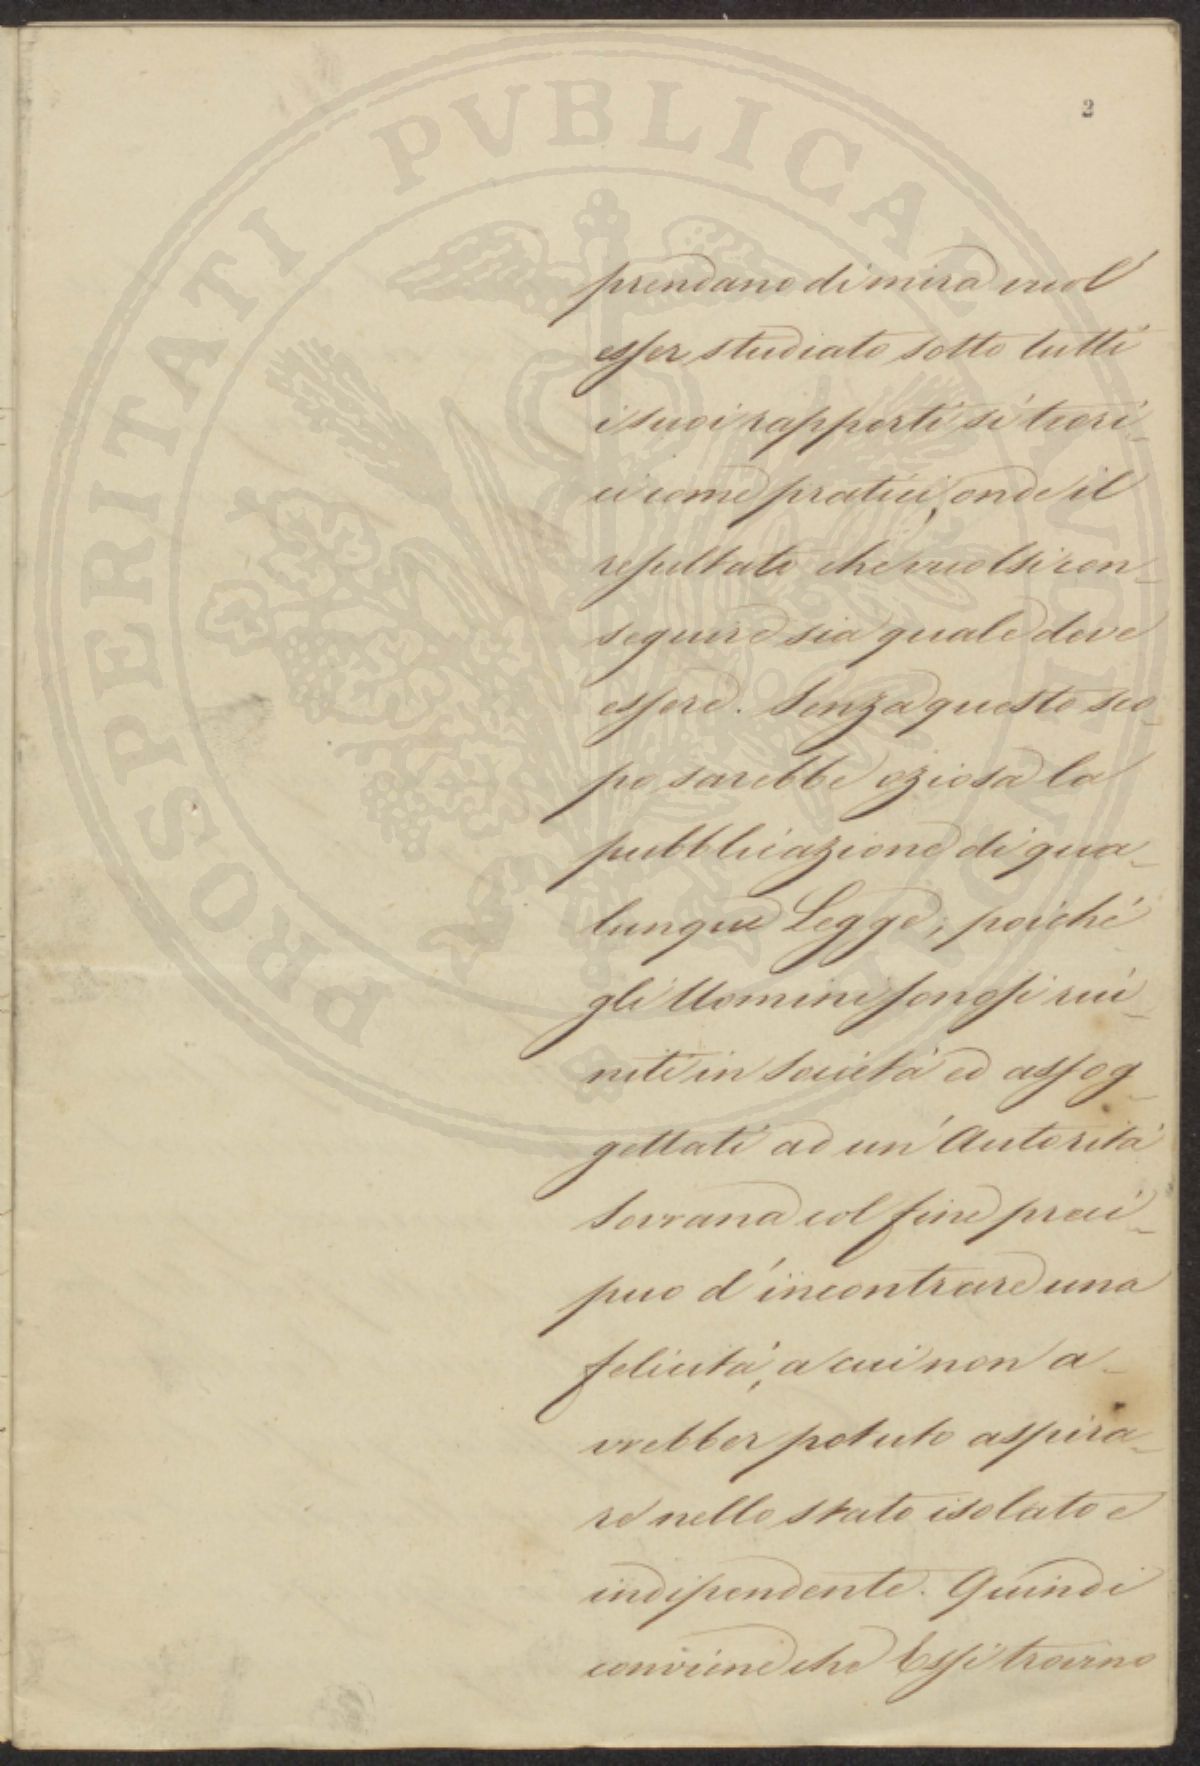 2
prendano di mira vuol
esser studiato sotto tutti
i suoi rapporti sì teori-
ci come pratici, onde il
resultato che vuolsi con-
seguire sia quale deve
essere. Senza questo sco-
po sarebbe oziosa la
pubblicazione di qua-
lunque Legge; poiché
gli Uomini sonosi riu-
niti in Società ed assog-
gettati ad un' Autorità
Sovrana col fine preci-
puo d'incontrare una
felicità, a cui non a-
vrebber potuto aspira-
re nello stato isolato e
indipendente. Quindi
conviene che Essi trovino
PROSPERITATI PVBLICAE